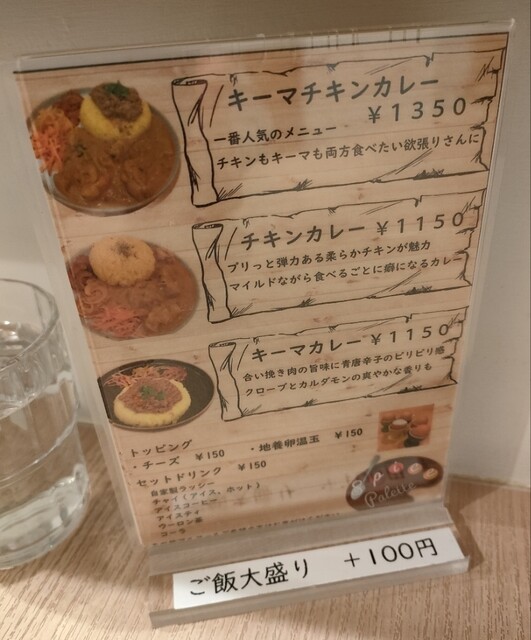 キーマチキンカレー
￥1350
一番人気のメニュー
チキンもキーマも両方食べたい欲張りさんに
チキンカレー ￥1150
プリっと弾力ある柔らかチキンが魅力
マイルドながら食べるごとに癖になるカレー
キーマカレー ￥1150
合い挽き肉の旨味に青唐辛子のピリピリ感
クローブとカルダモンの爽やかな香りも
トッピング
・チーズ ￥150 ・地養卵温玉 ￥150
セットドリンク ￥150
自家製ラッシー
チャイ(アイス、ホット)
アイスコーヒー
アイスティ
ウーロン茶
コーラ
Palette
ご飯大盛り +100円